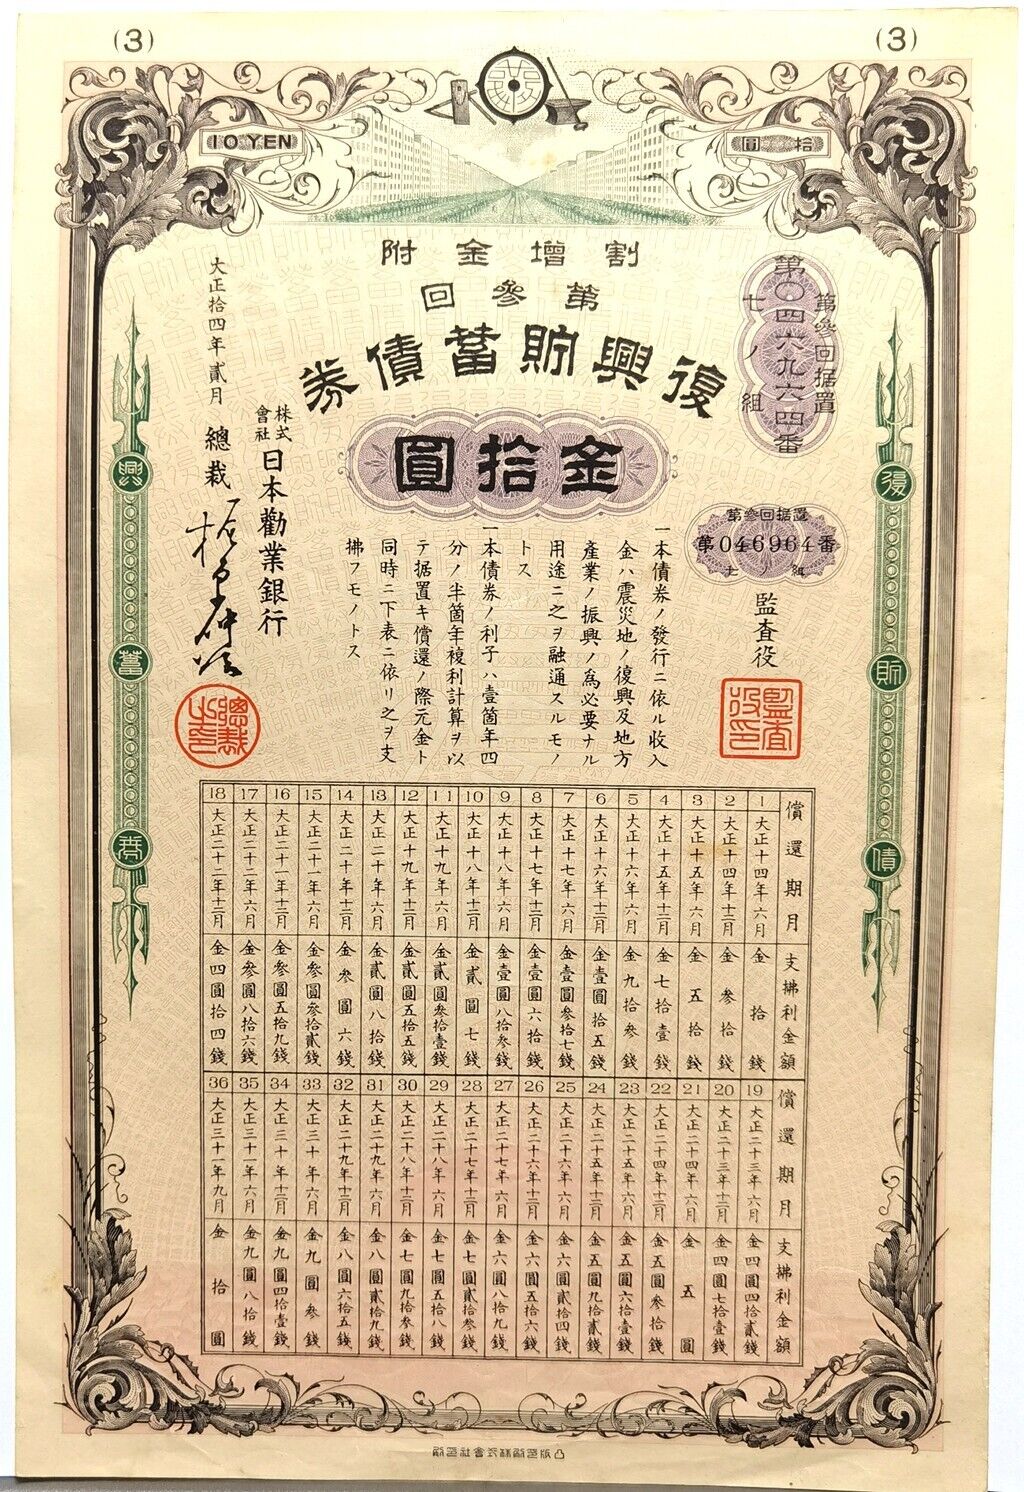 (3)
(3)
10 YEN
拾圓
割增金附
第參回
復興貯蓄債券
金拾圓
第參回据置
第〇四六九六四番
七ノ組
第參回据置
第046964番
七ノ組
監査役
監査役印
一本債券ノ發行ニ依ル收入
金ハ震災地ノ復興及地方
產業ノ振興ノ爲必要ナル
用途ニ之ヲ融通スルモノ
トス
一本債券ノ利子ハ壹箇年四
分ノ半箇年複利計算ヲ以
テ据置キ償還ノ際元金ト
同時ニ下表ニ依リ之ヲ支
拂フモノトス
株式會社日本勸業銀行
總裁
總裁之印
大正拾四年貳月
復
貯
債
興
蓄
券
償還期月 支拂利金額
1 大正十四年六月 金拾錢
2 大正十四年十二月 金參拾錢
3 大正十五年六月 金五拾錢
4 大正十五年十二月 金七拾壹錢
5 大正十六年六月 金九拾參錢
6 大正十六年十二月 金壹圓拾五錢
7 大正十七年六月 金壹圓參拾七錢
8 大正十七年十二月 金壹圓六拾錢
9 大正十八年六月 金壹圓八拾參錢
10 大正十八年十二月 金貳圓七錢
11 大正十九年六月 金貳圓參拾壹錢
12 大正十九年十二月 金貳圓五拾五錢
13 大正二十年六月 金貳圓八拾錢
14 大正二十年十二月 金參圓六錢
15 大正二十一年六月 金參圓參拾貳錢
16 大正二十一年十二月 金參圓五拾九錢
17 大正二十二年六月 金參圓八拾六錢
18 大正二十二年十二月 金四圓拾四錢
償還期月 支拂利金額
19 大正二十三年六月 金四圓四拾貳錢
20 大正二十三年十二月 金四圓七拾壹錢
21 大正二十四年六月 金五圓
22 大正二十四年十二月 金五圓參拾錢
23 大正二十五年六月 金五圓六拾壹錢
24 大正二十五年十二月 金五圓九拾貳錢
25 大正二十六年六月 金六圓貳拾四錢
26 大正二十六年十二月 金六圓五拾六錢
27 大正二十七年六月 金六圓八拾九錢
28 大正二十七年十二月 金七圓貳拾參錢
29 大正二十八年六月 金七圓五拾八錢
30 大正二十八年十二月 金七圓九拾參錢
31 大正二十九年六月 金八圓貳拾九錢
32 大正二十九年十二月 金八圓六拾五錢
33 大正三十年六月 金九圓參錢
34 大正三十年十二月 金九圓四拾壹錢
35 大正三十一年六月 金九圓八拾錢
36 大正三十一年九月 金拾圓
凸版印刷株式會社印刷